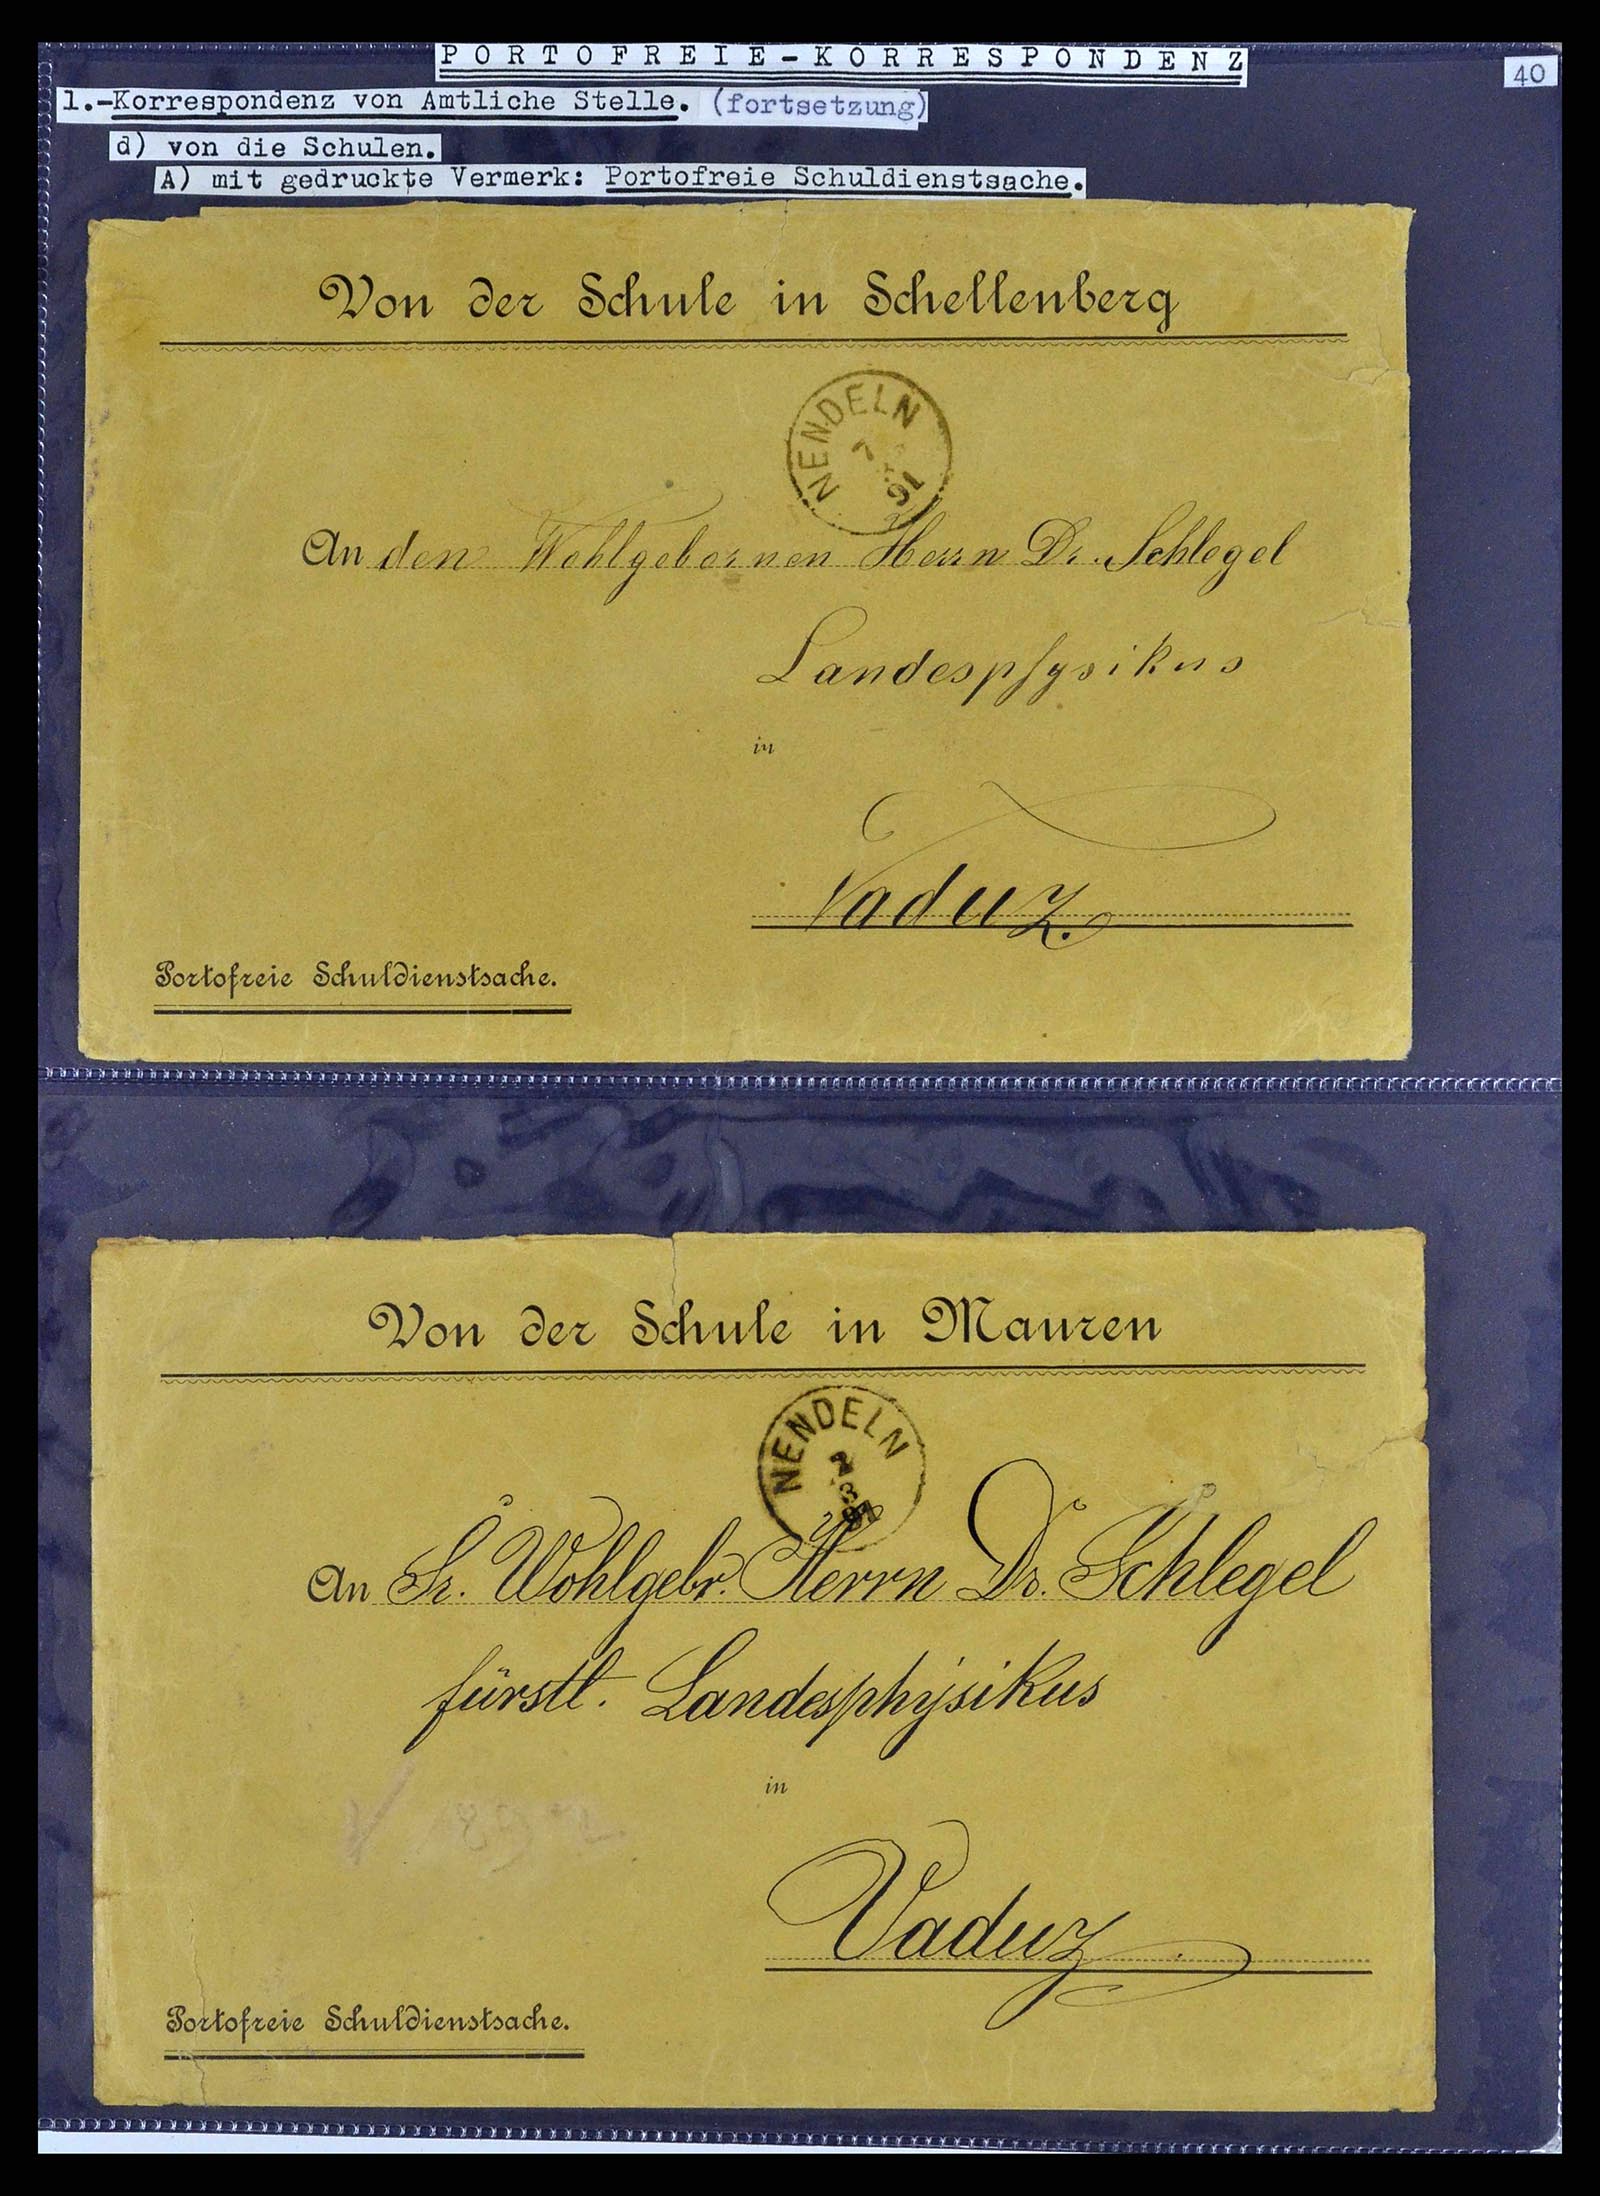 PORTOFREIE-KORRESPONDENZ
40
1.-Korrespondenz von Amtliche Stelle. (fortsetzung)
d) von die Schulen.
A) mit gedruckte Vermerk: Portofreie Schuldienstsache.
Von der Schule in Schellenberg
NENDELN
7
91
An den Wohlgebornen Herrn Dr. Schlegel
Landesphysikus
in
Vaduz.
Portofreie Schuldienstsache.
Von der Schule in Mauren
NENDELN
3
An Sr. Wohlgebr. Herrn Dr. Schlegel
fürstl. Landesphysikus
in
Vaduz
Portofreie Schuldienstsache.